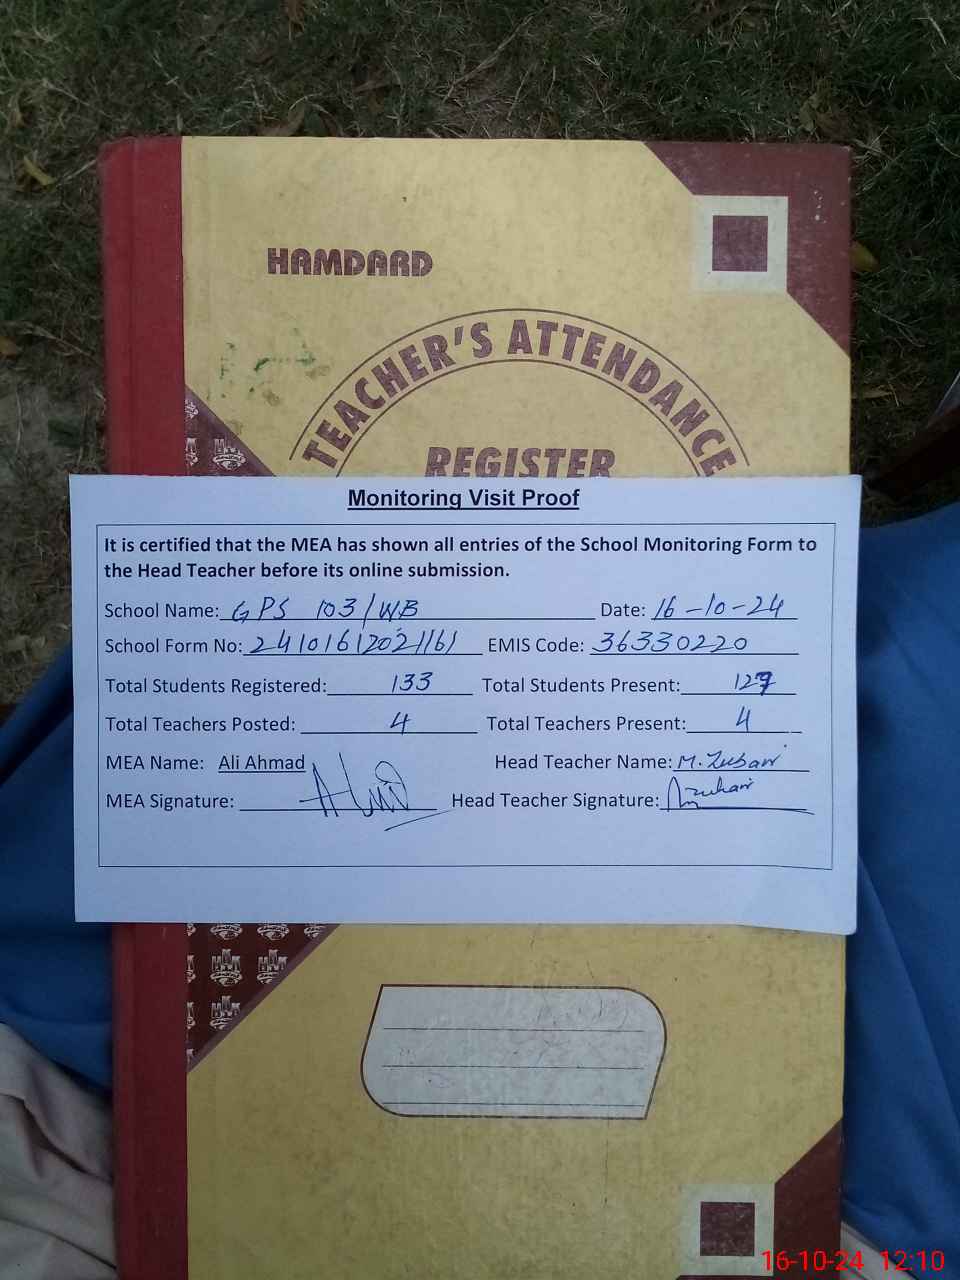 HAMDARD
TEACHER'S ATTENDANCE
REGISTER
Monitoring Visit Proof
It is certified that the MEA has shown all entries of the School Monitoring Form to
the Head Teacher before its online submission.
School Name: GPS 103/WB Date: 16-10-24
School Form No: 24101612021161 EMIS Code: 36330220
Total Students Registered: 133 Total Students Present: 127
Total Teachers Posted: 4 Total Teachers Present: 4
MEA Name: Ali Ahmad Head Teacher Name: M. Zubair
MEA Signature: Head Teacher Signature: Zubair
16-10-24 12:10